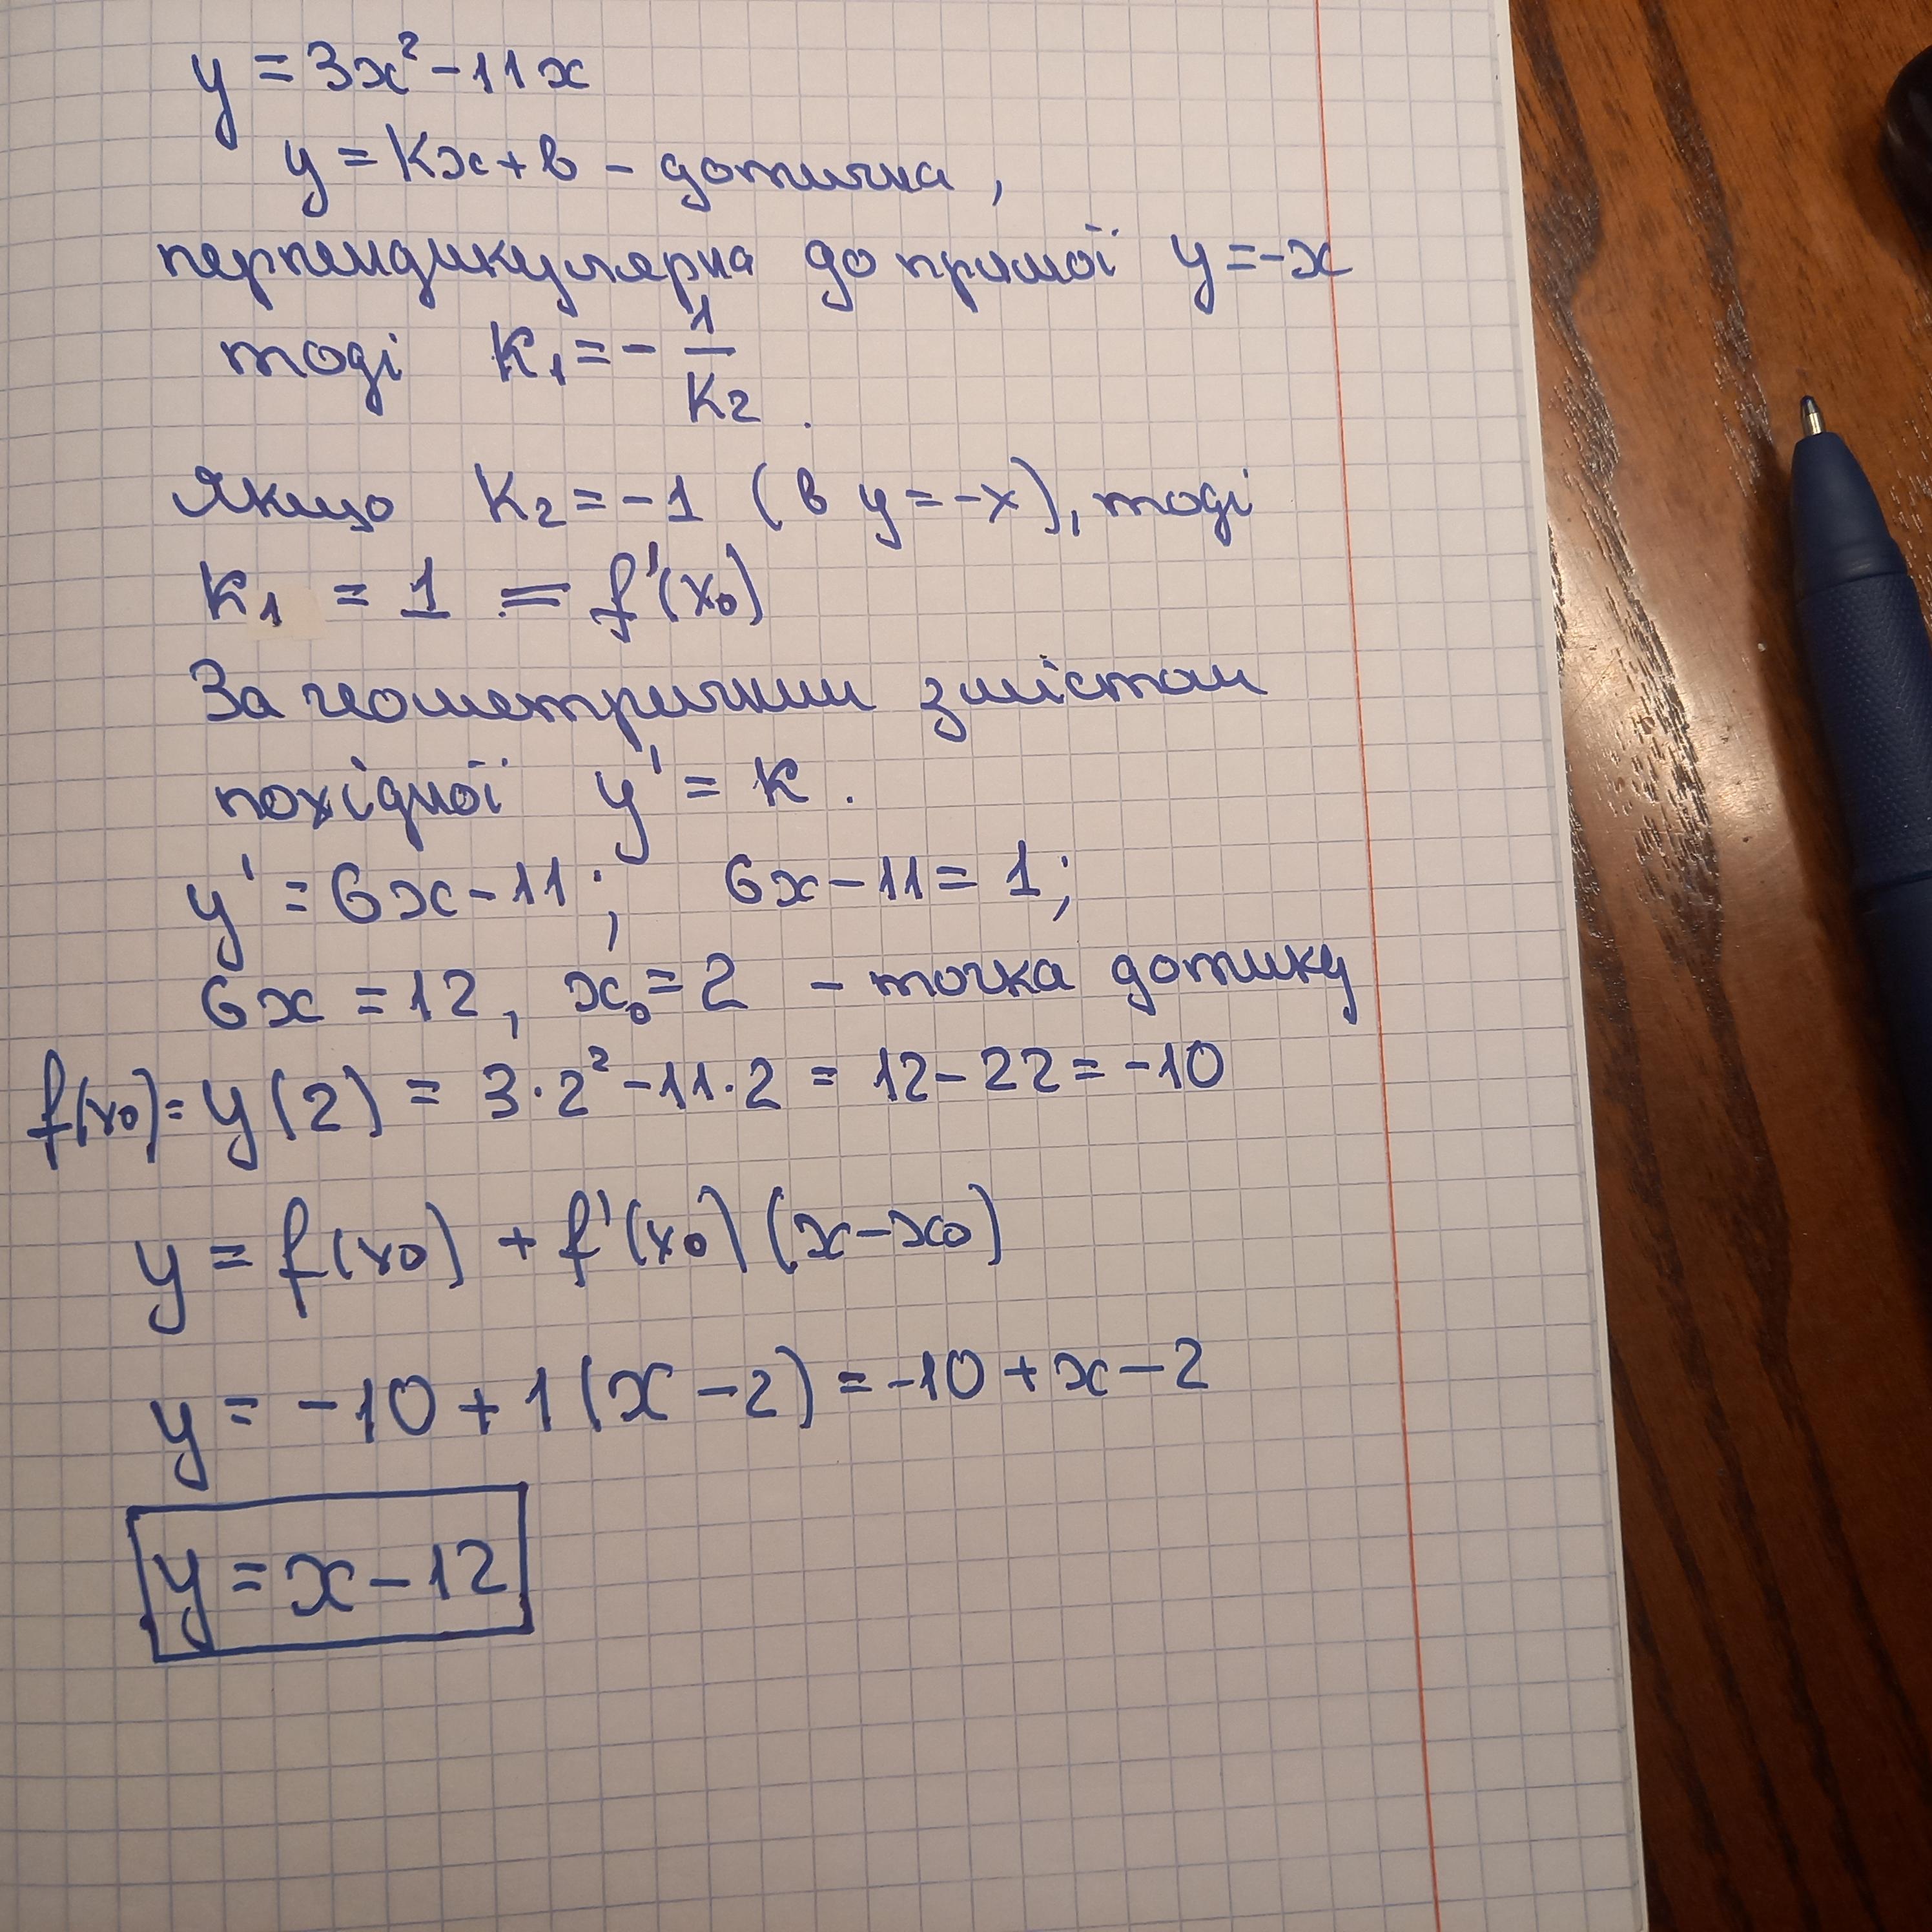 y = 3x² - 11x
y = kx + b - дотична,
перпендикулярна до прямої y = -x
тоді k₁ = - 1/k₂.
Якщо k₂ = -1 (в y = -x), тоді
k₁ = 1 = f'(x₀)
За геометричним змістом
похідної y' = k.
y' = 6x - 11; 6x - 11 = 1;
6x = 12, x₀ = 2 - точка дотику
f(x₀) = y(2) = 3·2² - 11·2 = 12 - 22 = -10
y = f(x₀) + f'(x₀)(x - x₀)
y = -10 + 1(x - 2) = -10 + x - 2
y = x - 12